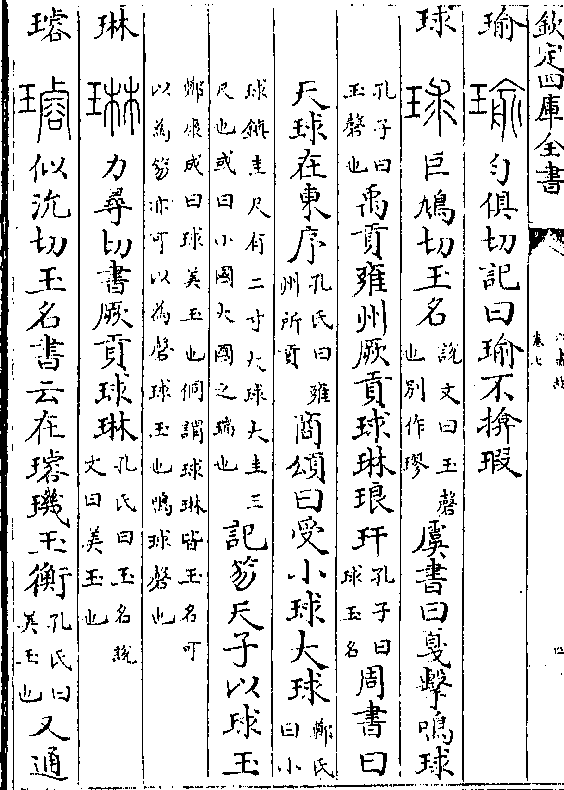 欽定四庫全書
卷七
瑜 瑜 勻俱切記曰瑜不揜瑕
球 球 巨鳩切玉名說文曰玉磬也別作璆虞書曰戛擊鳴球
孔子曰玉磬也禹貢雍州厥貢球琳琅玕孔子曰球玉名周書曰
天球在東序孔氏曰雍州所貢商頌曰受小球大球鄭氏曰小
球鎮圭尺有二寸大球大圭三尺也或曰小國大國之瑞也記笏天子以球玉
鄭康成曰球美玉也侗謂球琳皆玉名可以為笏亦可以為磬球玉也鳴球磬也
琳 琳 力尋切書厥貢球琳孔氏曰玉名說文曰美玉也
璿 璿 似沇切玉名書云在璿璣玉衡孔氏曰美玉也又通